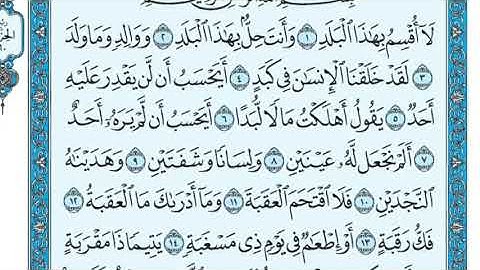 لَآ أُقْسِمُ بِهَٰذَا ٱلْبَلَدِ ١ وَأَنتَ حِلٌّۢ بِهَٰذَا ٱلْبَلَدِ ٢ وَوَالِدٍ وَمَا وَلَدَ
٣ لَقَدْ خَلَقْنَا ٱلْإِنسَٰنَ فِى كَبَدٍ ٤ أَيَحْسَبُ أَن لَّن يَقْدِرَ عَلَيْهِ
أَحَدٌ ٥ يَقُولُ أَهْلَكْتُ مَالًا لُّبَدًا ٦ أَيَحْسَبُ أَن لَّمْ يَرَهُۥٓ أَحَدٌ
٧ أَلَمْ نَجْعَل لَّهُۥ عَيْنَيْنِ ٨ وَلِسَانًا وَشَفَتَيْنِ ٩ وَهَدَيْنَٰهُ
ٱلنَّجْدَيْنِ ١٠ فَلَا ٱقْتَحَمَ ٱلْعَقَبَةَ ١١ وَمَآ أَدْرَىٰكَ مَا ٱلْعَقَبَةُ ١٢
فَكُّ رَقَبَةٍ ١٣ أَوْ إِطْعَٰمٌ فِى يَوْمٍ ذِى مَسْغَبَةٍ ١٤ يَتِيمًا ذَا مَقْرَبَةٍ